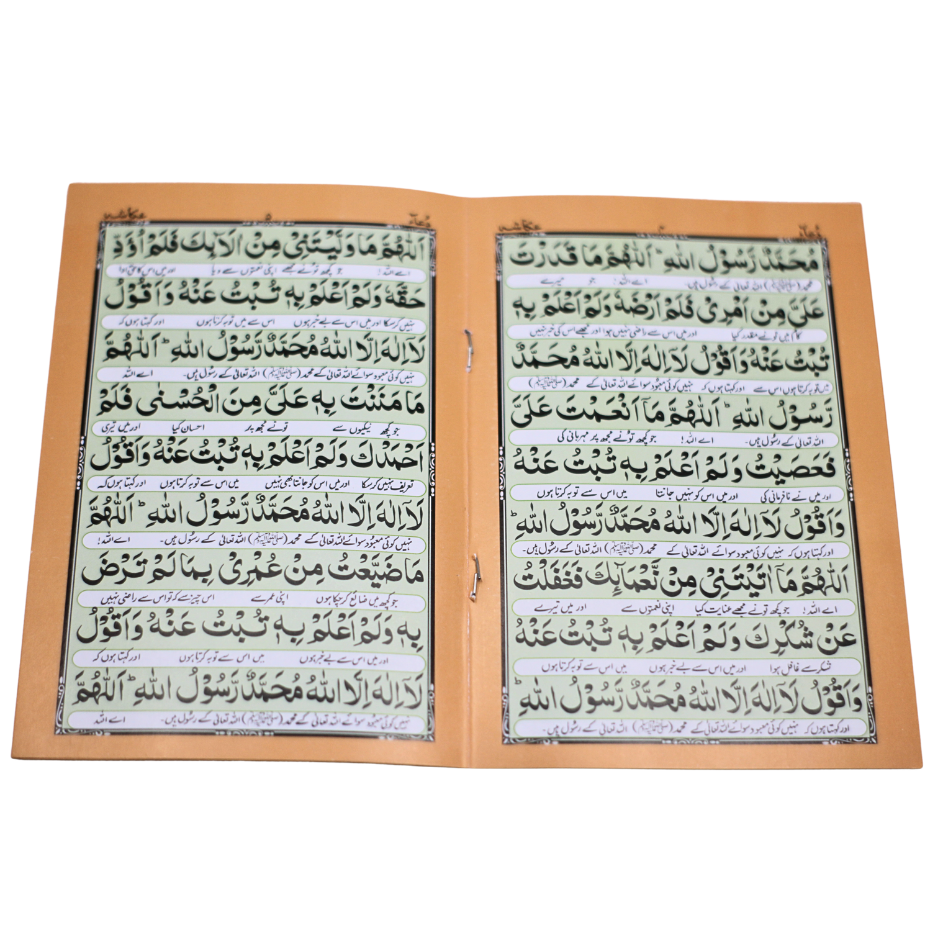 دُعائے عکاشہ
مُحَمَّدٌ رَّسُوْلُ اللهِ ؕ اَللّٰهُمَّ مَا قَدَرْتَ
محمد (ﷺ) اللہ تعالیٰ کے رسول ہیں۔ اے اللہ! جو تیرے
عَلَیَّ مِنْ اَمْرِیْ فَلَمْ اَرْضَهٗ وَلَمْ اَعْلَمْ بِهٖ
کام میں تونے مقدر کیا اور میں اس سے راضی نہیں ہوا اور مجھے اس کی خبر نہیں
تُبْتُ عَنْهُ وَاَقُوْلُ لَاۤ اِلٰهَ اِلَّا اللهُ مُحَمَّدٌ
میں توبہ کرتا ہوں اس سے اور کہتا ہوں کہ نہیں کوئی معبود سوائے اللہ تعالیٰ کے محمد (ﷺ)
رَّسُوْلُ اللهِ ؕ اَللّٰهُمَّ مَاۤ اَنْعَمْتَ عَلَیَّ
اللہ تعالیٰ کے رسول ہیں۔ اے اللہ! جو کچھ تونے مجھ پر مہربانی کی
فَعَصَیْتُ وَلَمْ اَعْلَمْ بِهٖ تُبْتُ عَنْهُ
اور میں نے نافرمانی کی اور میں اس کو نہیں جانتا میں اس سے توبہ کرتا ہوں
وَاَقُوْلُ لَاۤ اِلٰهَ اِلَّا اللهُ مُحَمَّدٌ رَّسُوْلُ اللهِ ؕ
اور کہتا ہوں کہ نہیں کوئی معبود سوائے اللہ تعالیٰ کے محمد (ﷺ) اللہ تعالیٰ کے رسول ہیں۔
اَللّٰهُمَّ مَاۤ اٰتَیْتَنِیْ مِنْ نَّعْمَآئِكَ فَغَفَلْتُ
اے اللہ! جو کچھ تونے مجھے عنایت کیا اپنی نعمتوں سے اور میں تیرے
عَنْ شُكْرِكَ وَلَمْ اَعْلَمْ بِهٖ تُبْتُ عَنْهُ
شکر سے غافل ہوا اور میں اس سے بے خبر ہوں میں اس سے توبہ کرتا ہوں
وَاَقُوْلُ لَاۤ اِلٰهَ اِلَّا اللهُ مُحَمَّدٌ رَّسُوْلُ اللهِ ؕ
اور کہتا ہوں کہ نہیں کوئی معبود سوائے اللہ تعالیٰ کے محمد (ﷺ) اللہ تعالیٰ کے رسول ہیں۔
دُعائے عکاشہ
اَللّٰهُمَّ مَا وَلَّیْتَنِیْ مِنْ اٰلَآئِكَ فَلَمْ اُؤَدِّ
اے اللہ! جو کچھ تونے مجھے اپنی نعمتوں سے دیا اور میں اس کا حق ادا
حَقَّهٗ وَلَمْ اَعْلَمْ بِهٖ تُبْتُ عَنْهُ وَاَقُوْلُ
نہیں کرسکا اور میں اس سے بے خبر ہوں اس سے میں توبہ کرتا ہوں اور کہتا ہوں کہ
لَاۤ اِلٰهَ اِلَّا اللهُ مُحَمَّدٌ رَّسُوْلُ اللهِ ؕ اَللّٰهُمَّ
نہیں کوئی معبود سوائے اللہ تعالیٰ کے محمد (ﷺ) اللہ تعالیٰ کے رسول ہیں۔ اے اللہ
مَا مَنَنْتَ بِهٖ عَلَیَّ مِنَ الْحُسْنٰی فَلَمْ
جو کچھ نیکیوں سے تونے مجھ پر احسان کیا اور میں تیری
اَحْمَدْكَ وَلَمْ اَعْلَمْ بِهٖ تُبْتُ عَنْهُ وَاَقُوْلُ
تعریف نہیں کرسکا اور میں اس کو جانتا بھی نہیں میں اس سے توبہ کرتا ہوں اور کہتا ہوں کہ
لَاۤ اِلٰهَ اِلَّا اللهُ مُحَمَّدٌ رَّسُوْلُ اللهِ ؕ اَللّٰهُمَّ
نہیں کوئی معبود سوائے اللہ تعالیٰ کے محمد (ﷺ) اللہ تعالیٰ کے رسول ہیں۔ اے اللہ!
مَا ضَیَّعْتُ مِنْ عُمْرِیْ بِمَا لَمْ تَرْضَ
جو کچھ میں ضائع کرچکا ہوں اپنی عمر سے اس چیز سے کہ تو اس سے راضی نہیں
بِهٖ وَلَمْ اَعْلَمْ بِهٖ تُبْتُ عَنْهُ وَاَقُوْلُ
اور میں اس سے بے خبر ہوں میں اس سے توبہ کرتا ہوں اور کہتا ہوں کہ
لَاۤ اِلٰهَ اِلَّا اللهُ مُحَمَّدٌ رَّسُوْلُ اللهِ ؕ اَللّٰهُمَّ
نہیں کوئی معبود سوائے اللہ تعالیٰ کے محمد (ﷺ) اللہ تعالیٰ کے رسول ہیں۔ اے اللہ